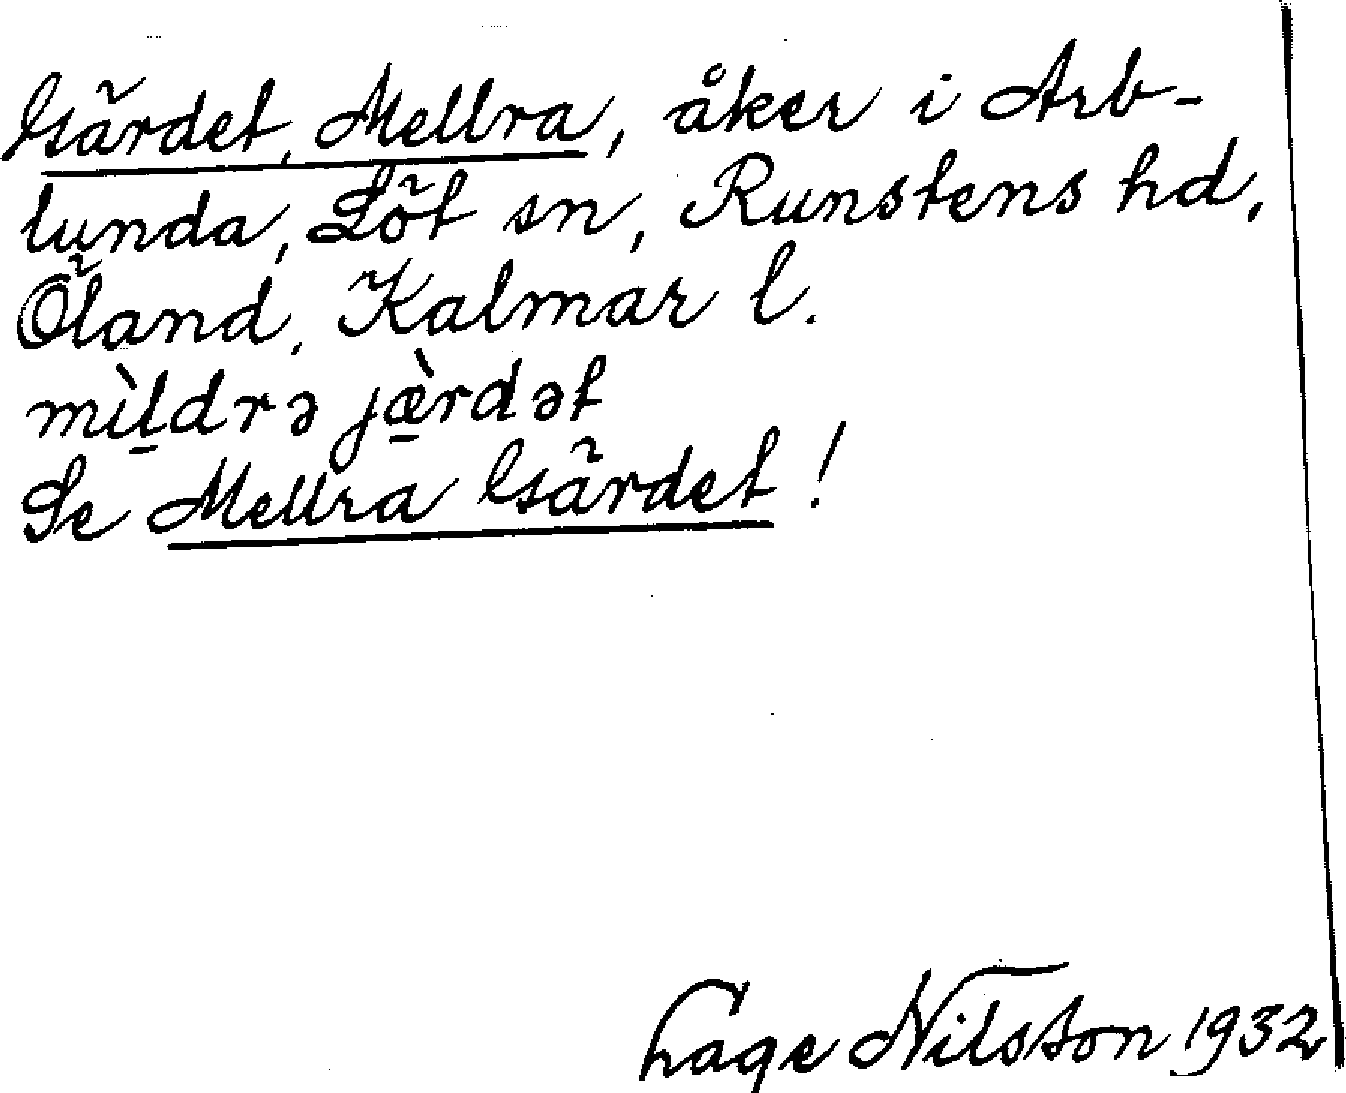 Gärdet, Mellra, åker i Arb-
lunda, Löt sn, Runstens hd,
Öland, Kalmar l.
mìl̠drə jæ̠̀rdət
Se Mellra Gärdet!
Lage Nilsson 1932